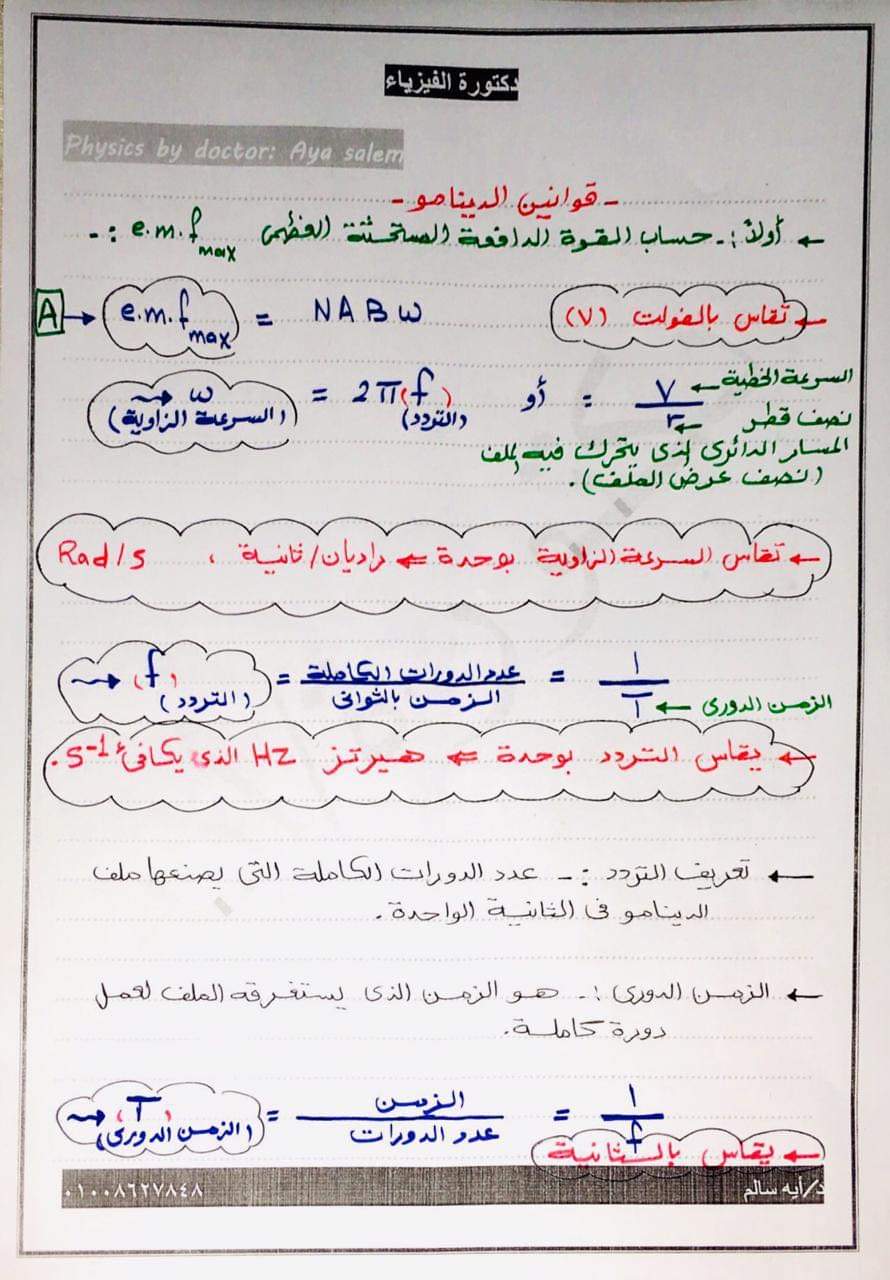 دكتورة الفيزياء
Physics by doctor: Aya salem
- قوانين الدينامو -
← أولاً :- حساب القوة الدافعة المستحثة العظمى e.m.f max :-
A → e.m.f max = N A B ω ← تقاس بالفولت (V)
ω (السرعة الزاوية) = 2π(f) (التردد) أو = V / r ← السرعة الخطية
← نصف قطر
المسار الدائرى الذى يتحرك فيه الملف
(نصف عرض الملف).
← تقاس السرعة الزاوية بوحدة ⇐ راديان/ثانية ، Rad/s
(f) (التردد) = عدد الدورات الكاملة / الزمن بالثوانى = 1 / T ← الزمن الدورى
← يقاس التردد بوحدة ⇐ هيرتز Hz الذى يكافئ S-1 .
← تعريف التردد :- عدد الدورات الكاملة التى يصنعها ملف
الدينامو فى الثانية الواحدة .
← الزمن الدورى :- هو الزمن الذى يستغرقه الملف لعمل
دورة كاملة .
(T) (الزمن الدورى) = الزمن / عدد الدورات = 1 / f
← يقاس بالثانية
د/أيه سالم ٠١٠٠٨٦٢٧٨٤٨